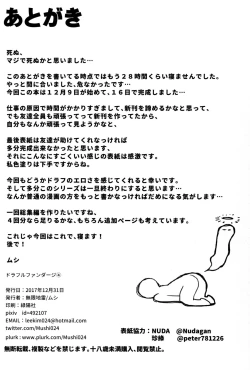 あとがき
死ぬ、
マジで死ぬかと思いました…
このあとがきを書いてる時点ではもう28時間くらい寝ませんでした。
やっと間に合いました、危なかったです…
今回この本は12月9日が始めて、16日で完成しました…
仕事の原因で時間がかかりすぎまして、新刊を諦めるかなと思って、
でも友達全員も頑張ってって新刊を作ってたから、
自分もなんか頑張って見ようかなと、
最後表紙は友達が助けてくれなっければ
多分完成出来なかったと思います、
それにこんなにすごくいい感じの表紙は感激です。
私色塗りは下手ですからね。
今回もどうかドラフのエロさを感じてくれると幸いです。
そして多分このシリーズは一旦終わりにすると思います…
なんか普通の漫画の方をもっと書かなければだめになる気がします…
一回総集編を作りたいですね、
4回分なら足りるかな、もちろん追加ページも考えています。
これじゃ今回はこれで、寝ます！
後で！
ムシ
ドラフルファンダージ④
発行日：2017年12月31日
発行者：無限地雷/ムシ
印刷：緑陽社
pixiv id=492107
EMAIL：leekim024@hotmail.com
twitter.com/Mushi024
plurk : www.plurk.com/Mushi024
表紙協力：NUDA @Nudagan
珍棒 @peter781226
無断転載、複製などを禁じます。十八歳未満購入、閲覧禁止。